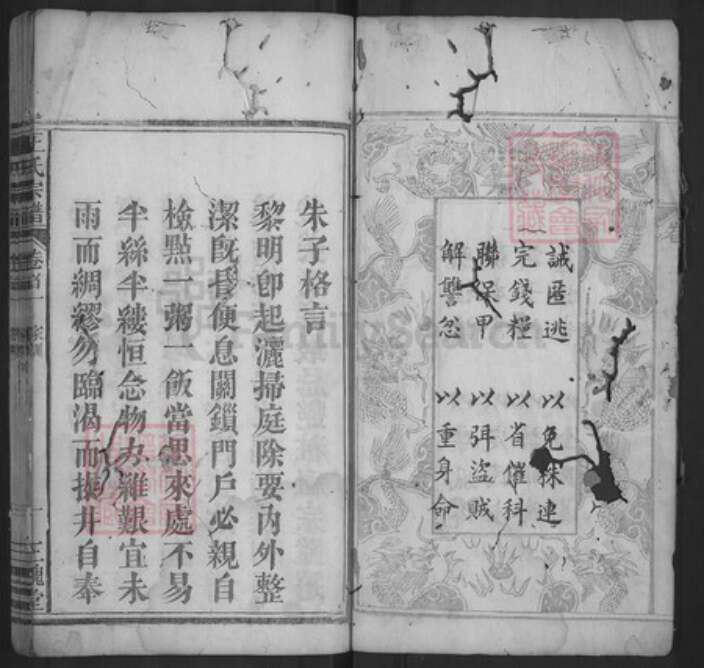 誡匿逃 以免株連
完錢糧 以省催科
聯保甲 以弭盜賊
解讐忿 以重身命
朱子格言
黎明卽起灑掃庭除要內外整
潔旣昏便息關鎖門戶必親自
檢點一粥一飯當思來處不易
半絲半縷恒念物力維艱宜未
雨而綢繆勿臨渴而掘井自奉
王氏宗譜
卷首
三槐堂
FamilySearch